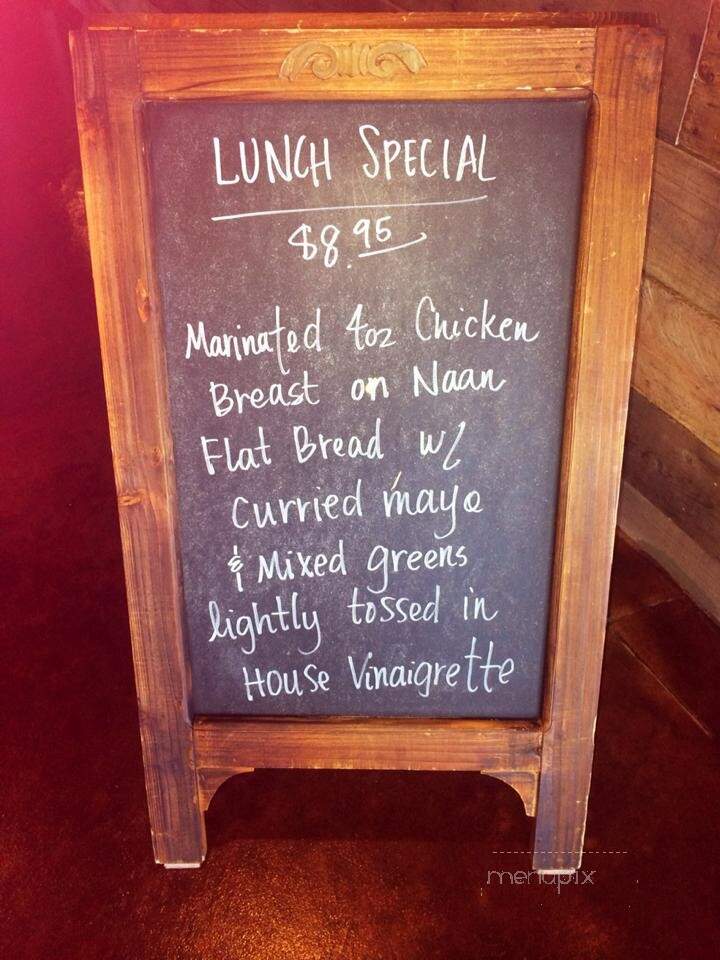 LUNCH SPECIAL
$8.95
Marinated 4oz Chicken
Breast on Naan
Flat Bread w/
curried mayo
& Mixed greens
lightly tossed in
House Vinaigrette
menupix